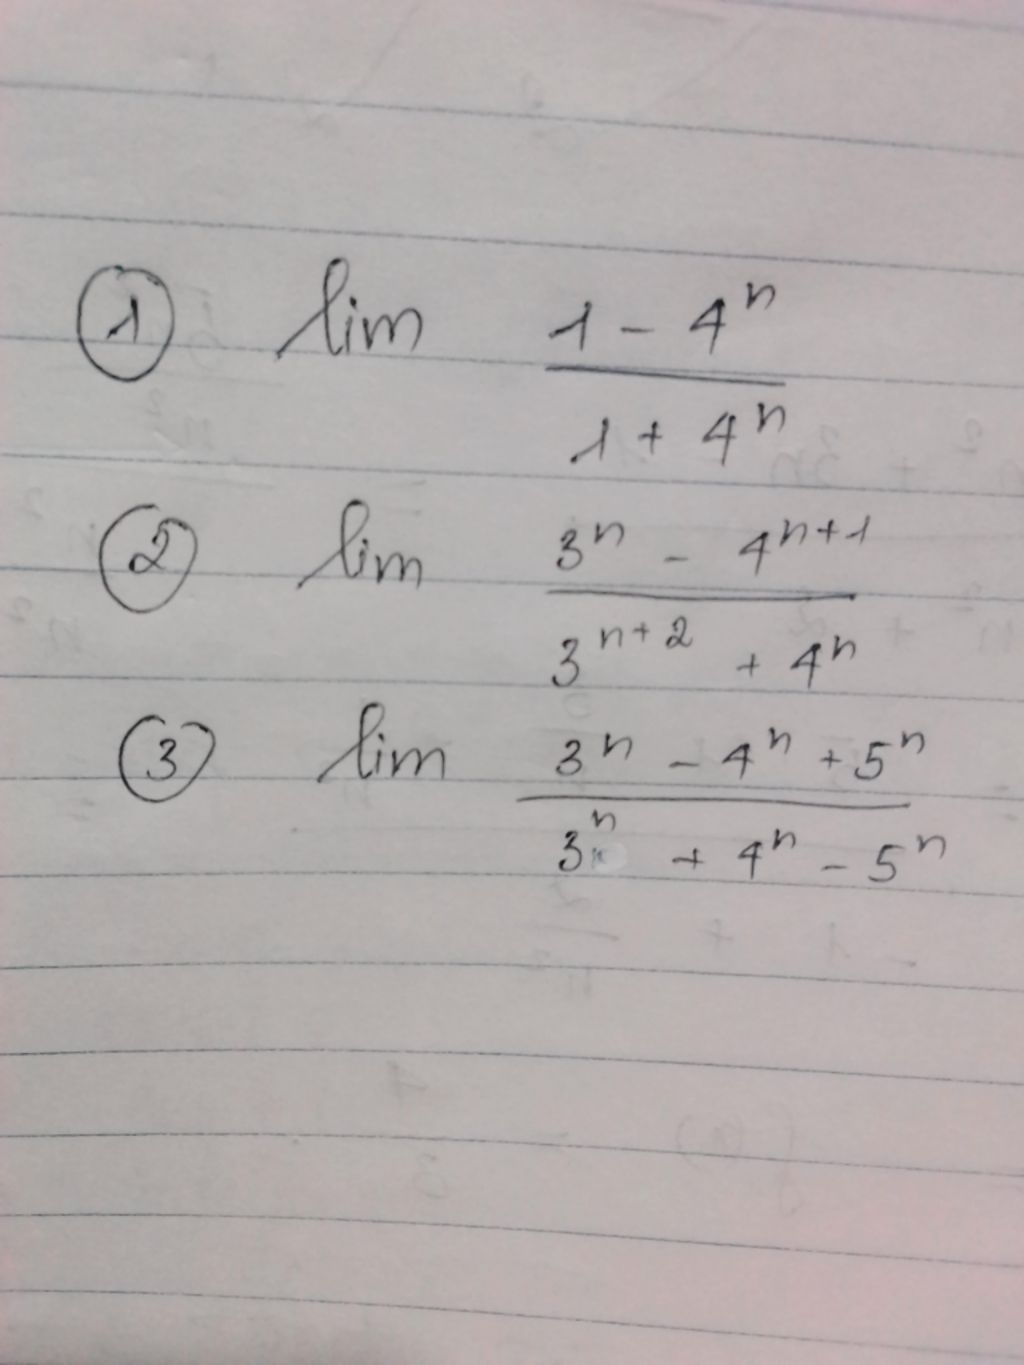 ① lim (1 - 4ⁿ) / (1 + 4ⁿ)
② lim (3ⁿ - 4ⁿ⁺¹) / (3ⁿ⁺² + 4ⁿ)
③ lim (3ⁿ - 4ⁿ + 5ⁿ) / (3ⁿ + 4ⁿ - 5ⁿ)